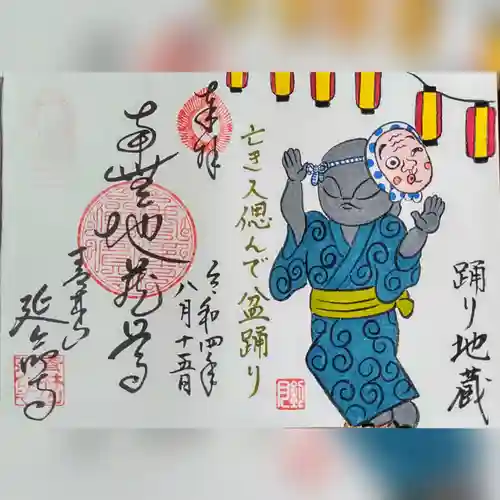 踊り地蔵
亡き人偲んで盆踊り
奉拝
令和四年
八月十五日
南無地蔵尊
延命寺